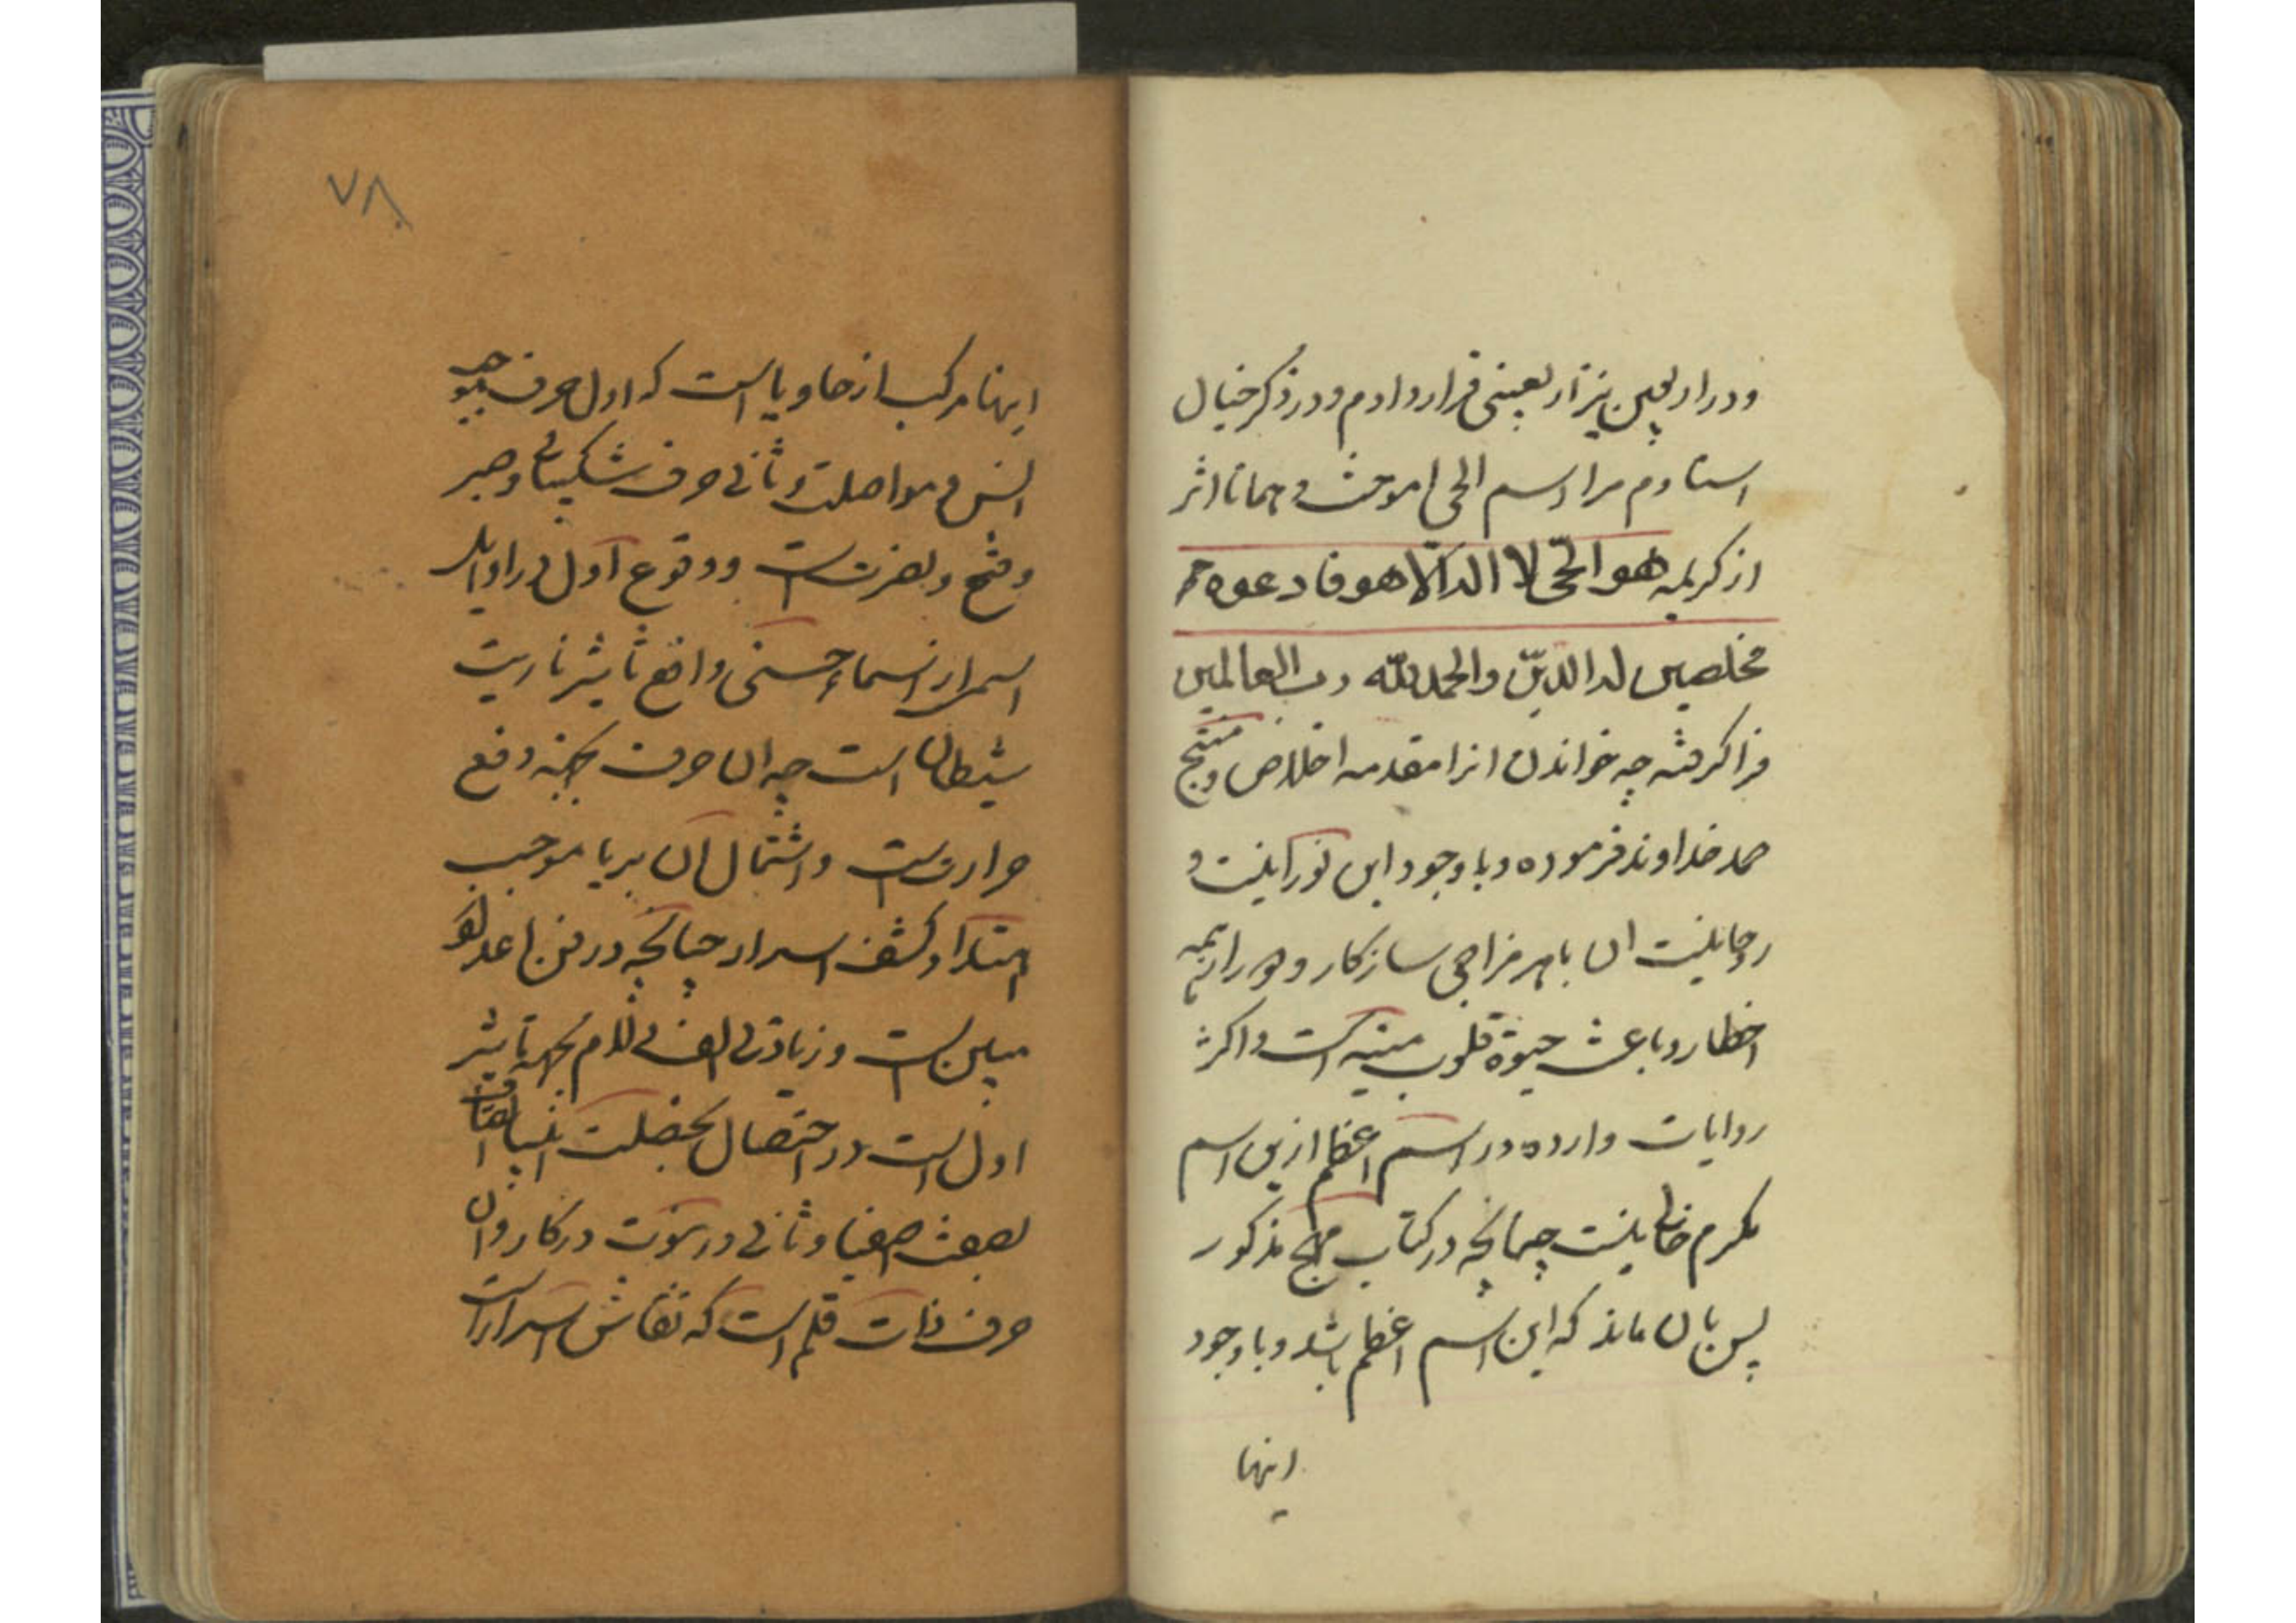 ودر اربعین نیز اربعینی قرار دادم ودر ذکر خیال
استادم مرا اسم الحی اموخت و همانا اثر
از کریمه هو الحی لا اله الا هو فادعوه
مخلصین له الدین والحمد لله رب العالمین
فرا گرفته چه خواندن انرا مقدمه اخلاص و منتج
حمد خداوند فرموده و با وجود این نورانیت و
روحانیت ان با هر مزاجی سازکار و
اخطار و باعث حیوة قلوب میته است و اکثر
روایات وارده در اسم اعظم ازین اسم
مکرم خالی نیست چنانچه در کتاب مذکور
پس بان ماند که این اسم اعظم باشد و با وجود
اینها
٧٨
اینها مرکب از حا و یا است که اول حرف
انس و مواصلت و ثانی حرف شکیبائی و صبر
وفتح و نصرتست و وقوع اول در اوایل
اسرار اسماء حسنی دافع تاثیر ناریت
شیطان است چه ان حرف بجهة دفع
حرارتست و اشتمال ان بر یا موجب
اهتدا و کشف اسرار چنانچه در فن اعداد
مبین است و زیادتی الف و لام بجهة تاثیر
اول است در اتصال بخصلت انبیا
بصفت اصفیا و ثانی در در کار و ان
حرف ذات قلم است که نقاش اسرار است